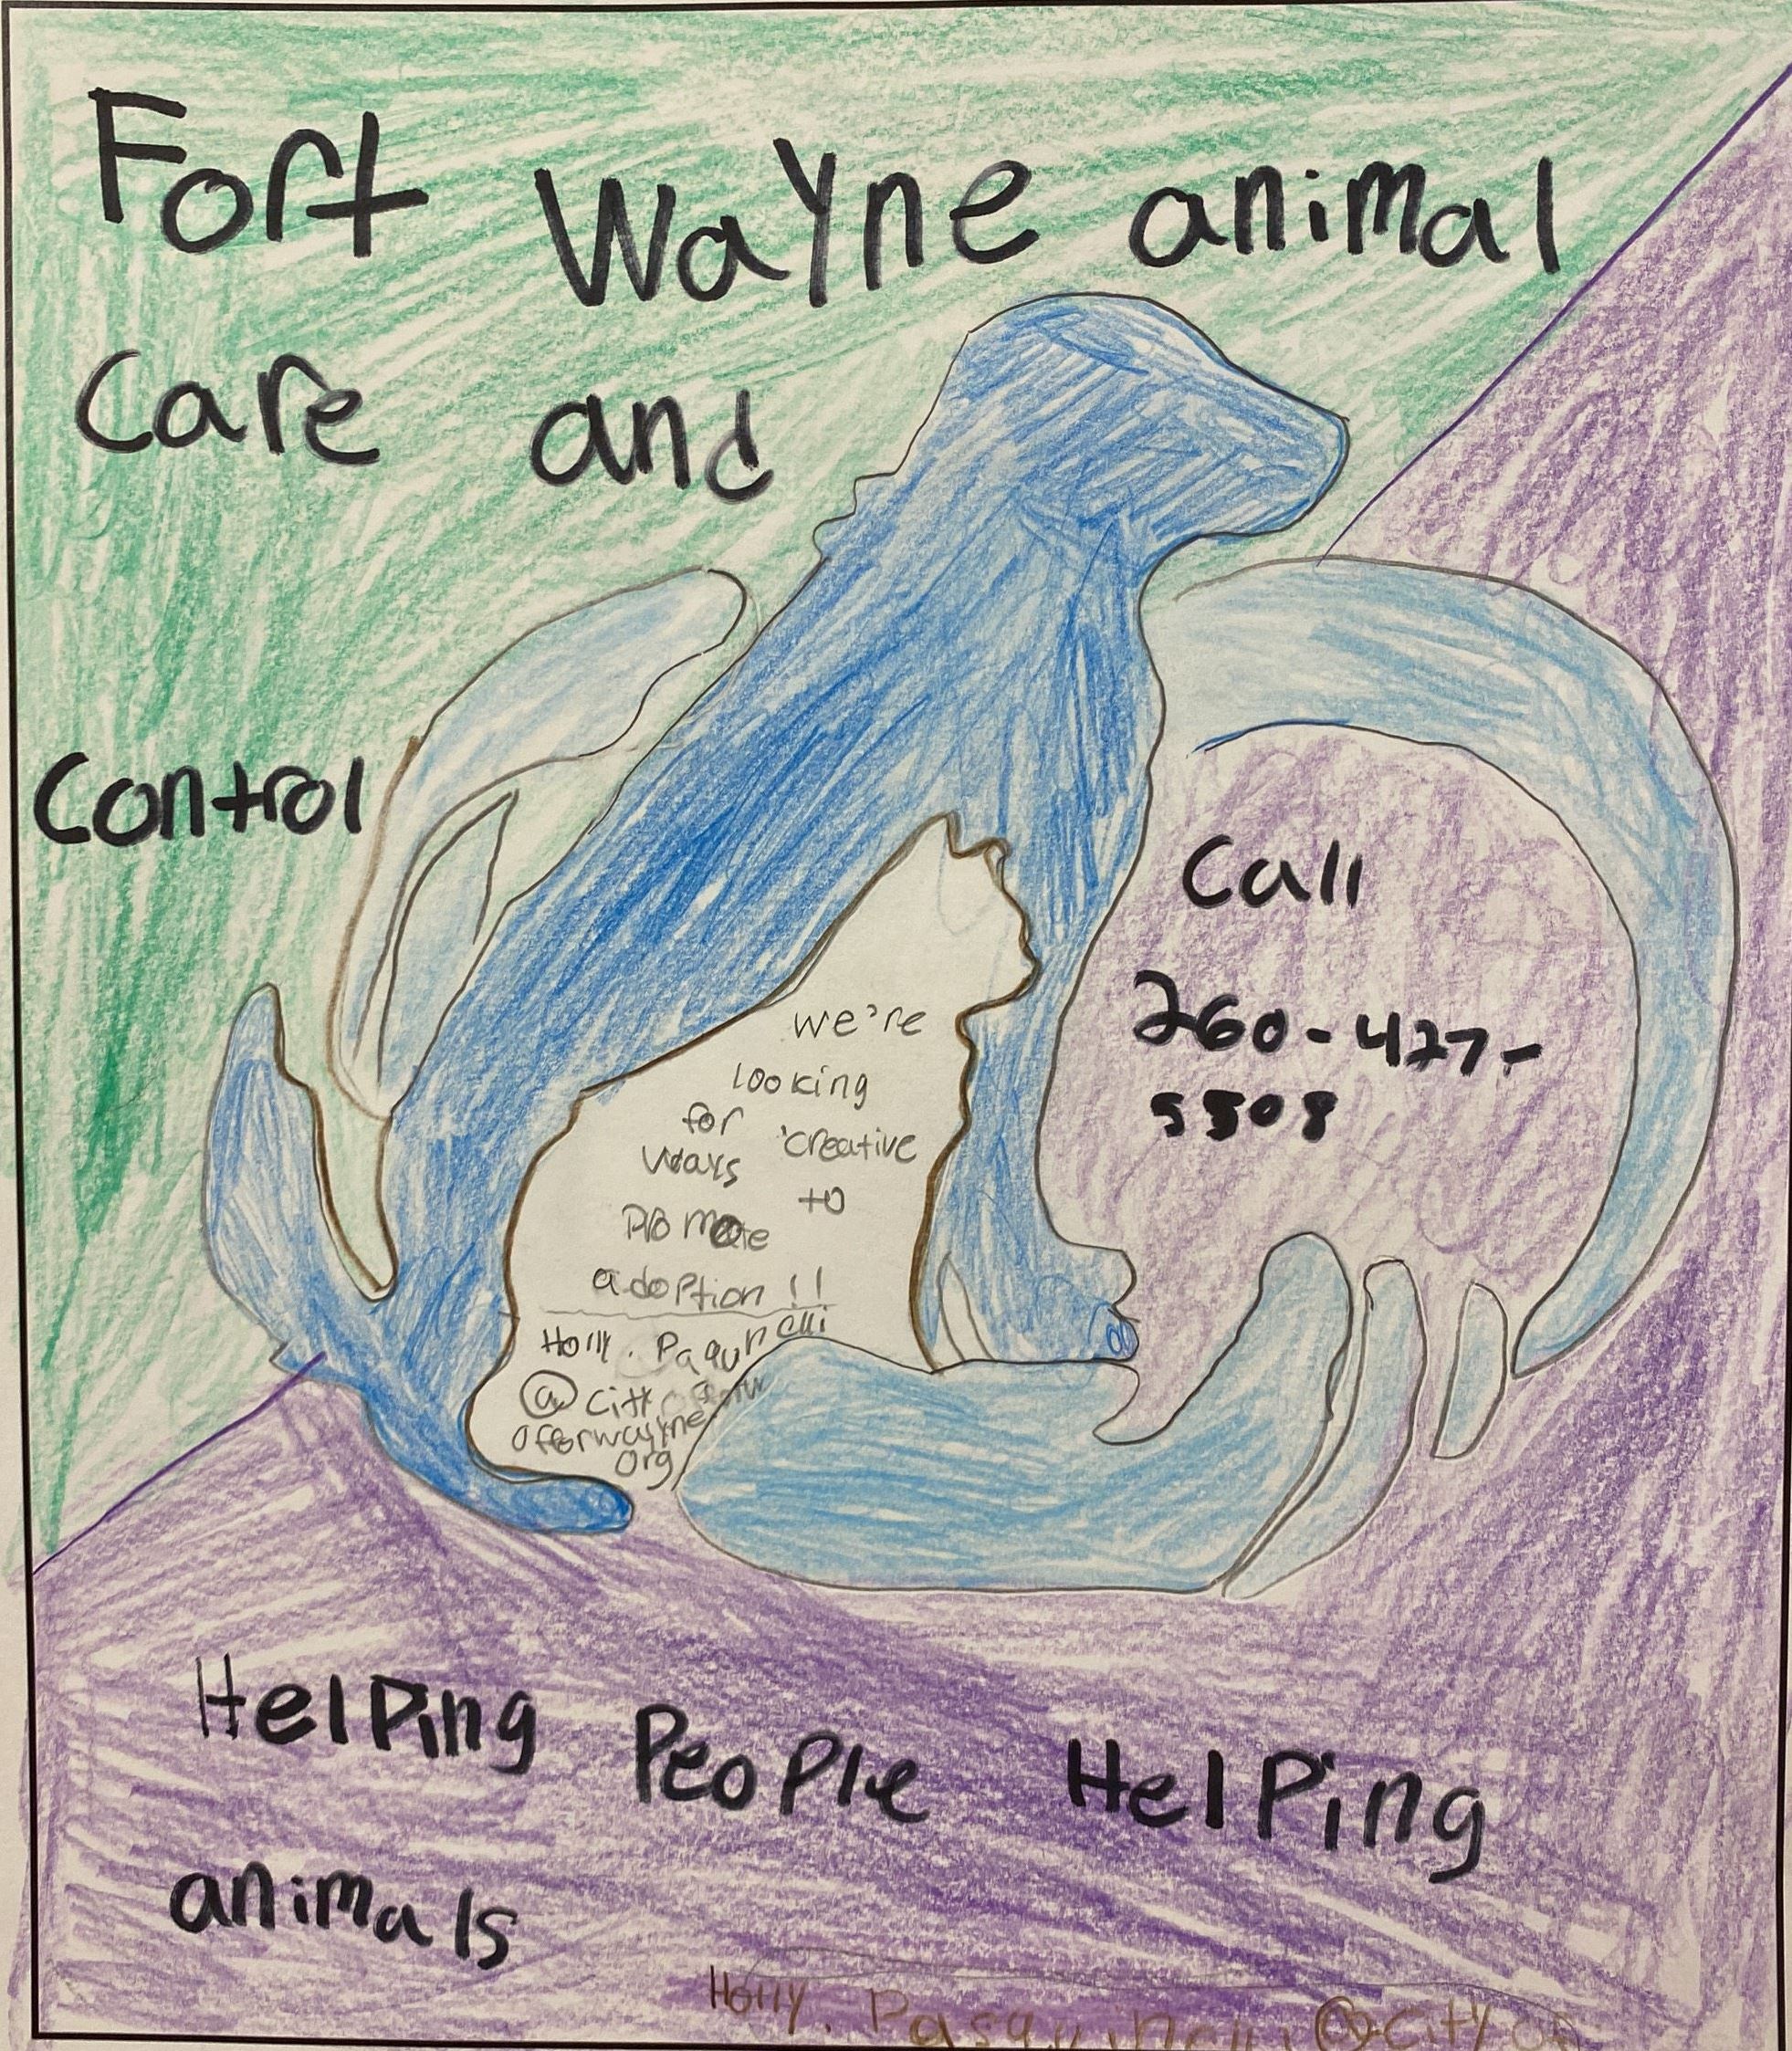 Fort Wayne animal
care and
control
call
260-427-
5508
we're
looking
for creative
ways to
promote
adoption!!
Holly.
@ city
org
Helping People Helping
animals
Holly. @ City of